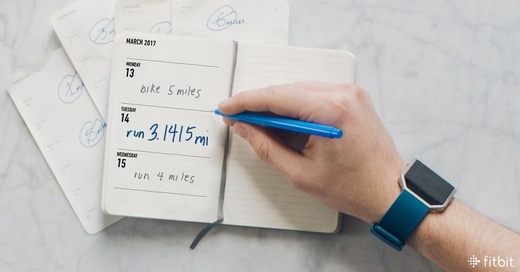 MARCH 2017
MONDAY
13
bike 5 miles
TUESDAY
14
run 3.1415mi
WEDNESDAY
15
run 4 miles
fitbit